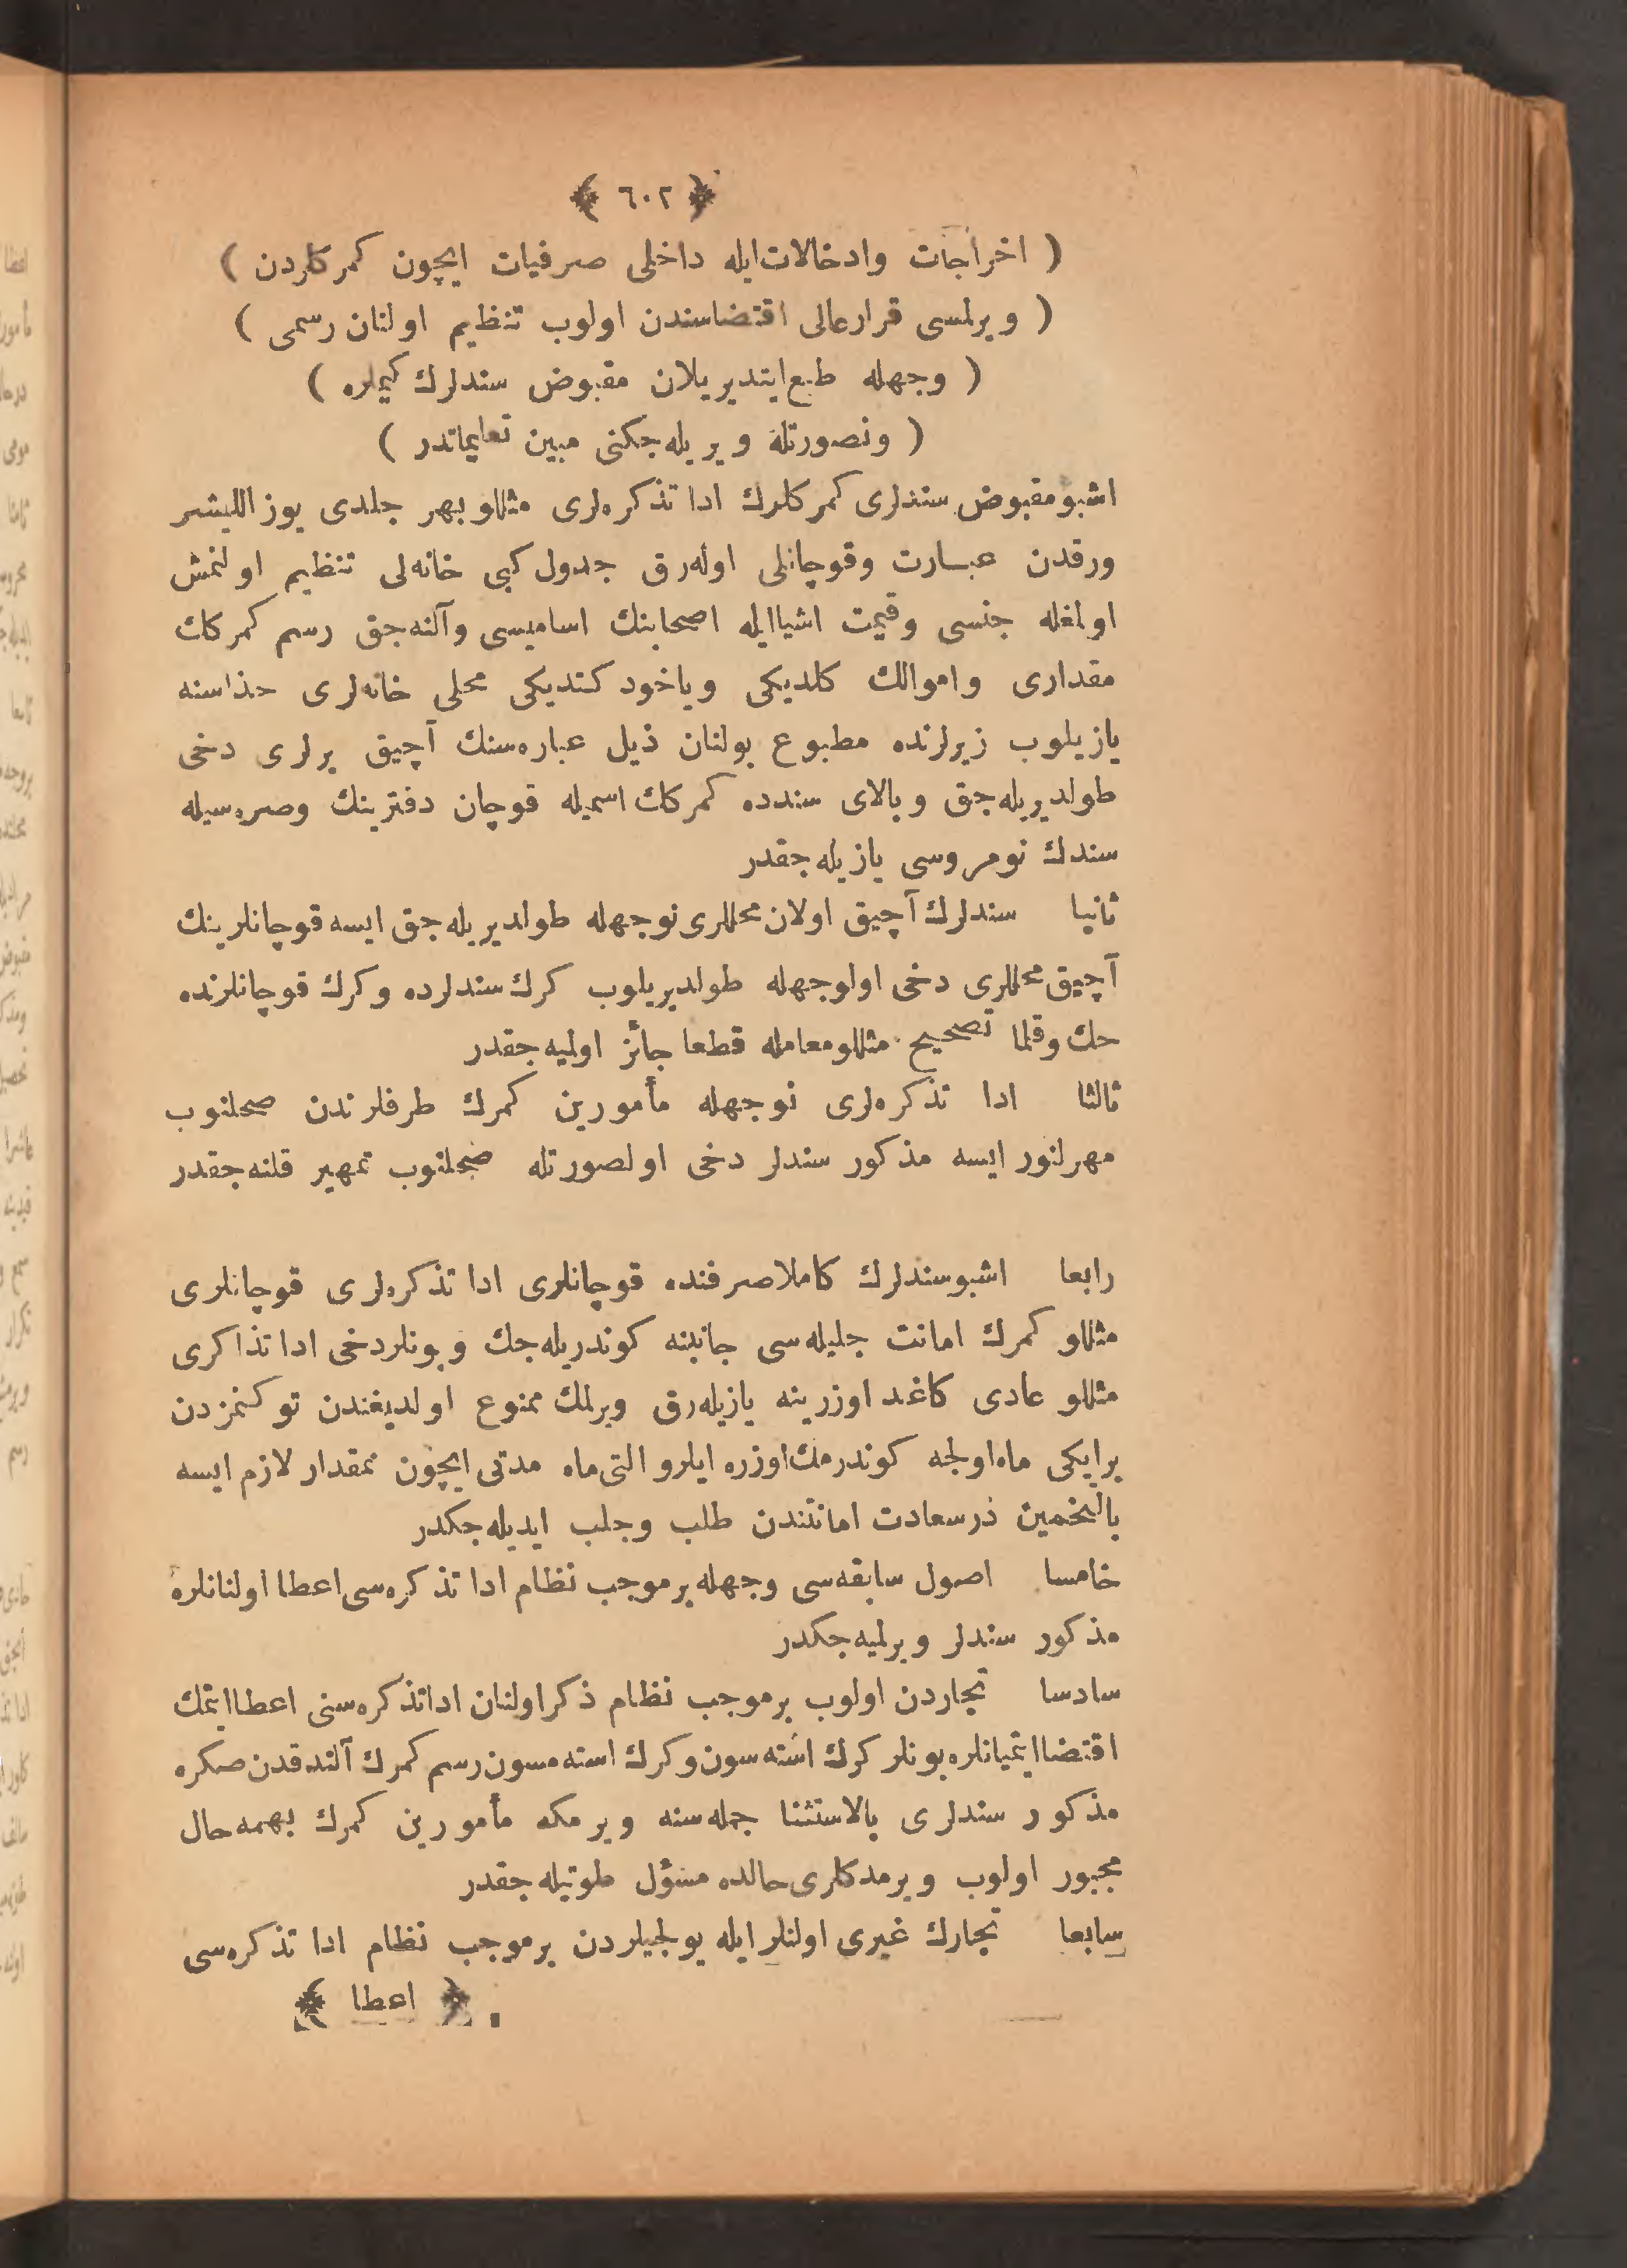 ﴿ ٦٠٢ ﴾
( اخراجات وادخالات ايله داخلى صرفيات ايچون كمركلردن )
( ويرلمسى قرارعالى اقتضاسندن اولوب تنظيم اولنان رسمى )
( وجهله طبع ايتديريلان مقبوض سندلرك كيملره )
( ونصورتله ويريله جكنى مبين تعليماتدر )
اشبو مقبوض سندلرى كمركلرك ادا تذكره لرى مثللو بهر جلدى يوز الليشر
ورقدن عبارت وقوچانلى اوله رق جدول كبى خانه لى تنظيم اولنمش
اولغله جنسى وقيمت اشيا ايله اصحابنك اساميسى وآلنه جق رسم كمركك
مقدارى واموالك كلديكى وياخود كتديكى محلى خانه لرى حذاسنه
يازيلوب زيرلرنده مطبوع بولنان ذيل عباره سنك آچيق يرلرى دخى
طولديريله جق وبالاى سندده كمركك اسميله قوچان دفترينك وصره سيله
سندك نومروسى يازيله جقدر
ثانيا سندلرك آچيق اولان محللرى نوجهله طولديريله جق ايسه قوچانلرينك
آچيق محللرى دخى اولوجهله طولديريلوب كرك سندلرده وكرك قوچانلرنده
حك وقلما تصحيح مثللو معامله قطعا جائز اوليه جقدر
ثالثا ادا تذكره لرى نوجهله مأمورين كمرك طرفلرندن صحلنوب
مهرلنور ايسه مذكور سندلر دخى اولصورتله صحلنوب تمهير قلنه جقدر
رابعا اشبو سندلرك كاملا صرفنده قوچانلرى ادا تذكره لرى قوچانلرى
مثللو كمرك امانت جليله سى جانبنه كوندريله جك وبونلردخى ادا تذاكرى
مثللو عادى كاغد اوزرينه يازيله رق ويرلمك ممنوع اولديغندن توكنمزدن
برايكى ماه اولجه كوندرمك اوزره ايلرو التى ماه مدتى ايچون نمقدار لازم ايسه
بالتخمين درسعادت امانتندن طلب وجلب ايديله جكدر
خامسا اصول سابقه سى وجهله برموجب نظام ادا تذكره سى اعطا اولنانلره
مذكور سندلر ويرلميه جكدر
سادسا تجاردن اولوب برموجب نظام ذكر اولنان اداتذكره سنى اعطا ايتمك
اقتضا ايتميانلره بونلر كرك استه سون وكرك استه مسون رسم كمرك آلندقدن صكره
مذكور سندلرى بالاستثنا جمله سنه ويرمكه مأمورين كمرك بهمه حال
مجبور اولوب ويرمدكلرى حالده مسؤل طوتيله جقدر
سابعا تجارك غيرى اولنلر ايله يولجيلردن برموجب نظام ادا تذكره سى
﴿ اعطا ﴾